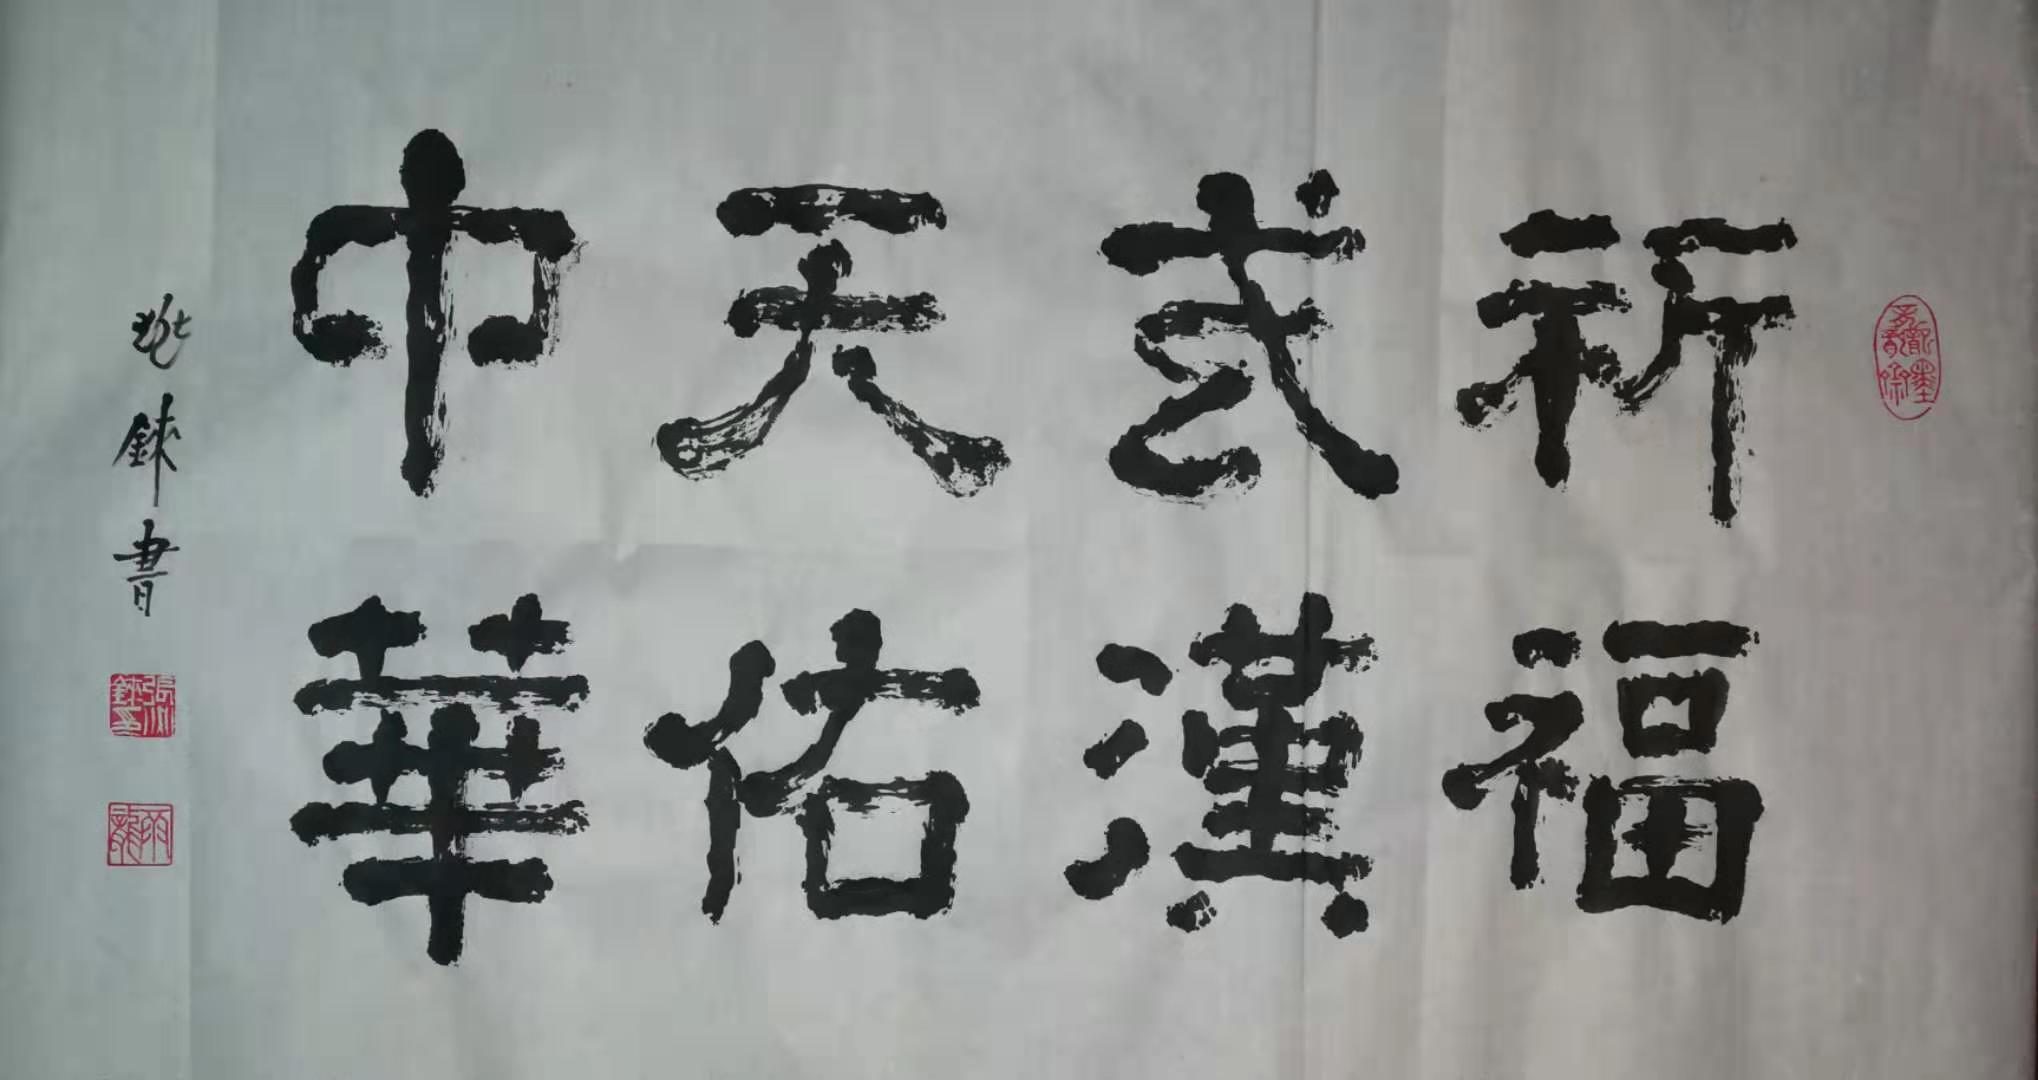 祈福
武漢
天佑
中華
錸書